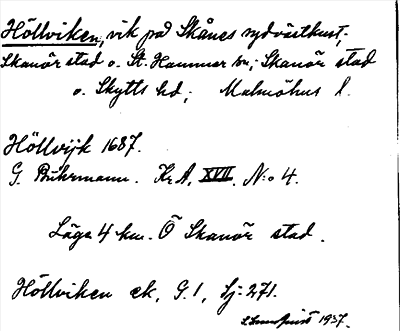 Höllviken, vik på Skånes sydvästkust,
Skanör stad o. St. Hammar sn; Skanör stad
o. Skytts hd; Malmöhus l.
Höllvijk 1687.
G. Buhrmann. Kr.A. XVII. N:o 4.
Läge 4 km. Ö Skanör stad.
Höllviken ek, G. 1, Lj: 271.
1937.